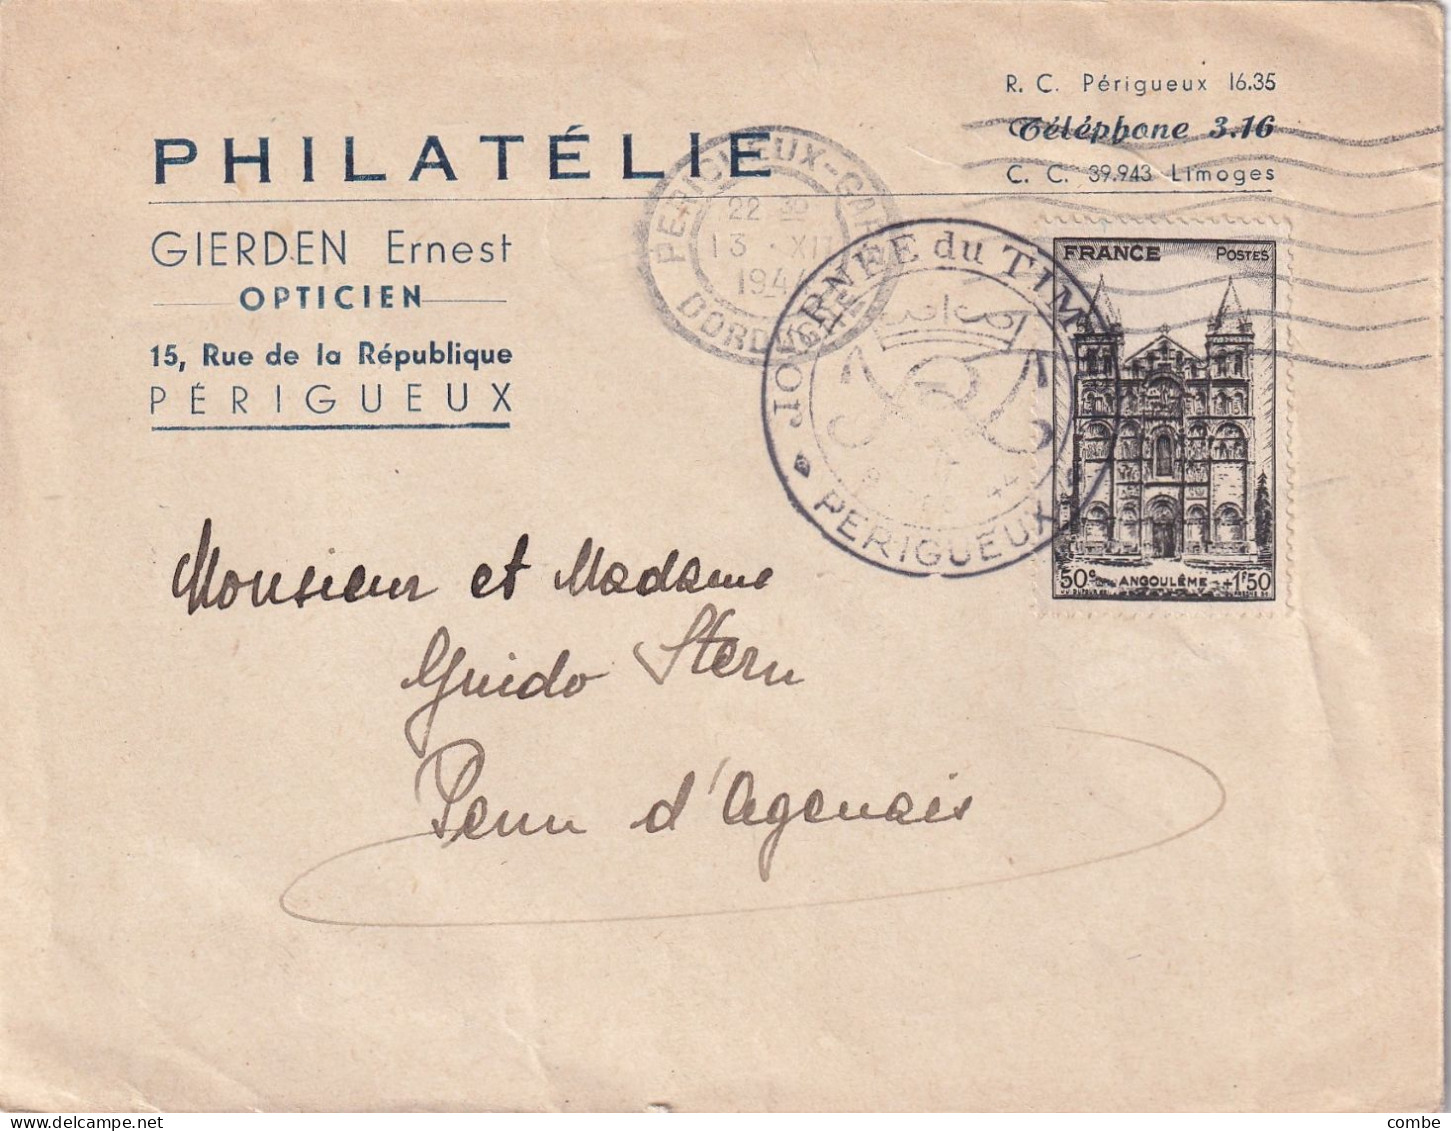 R. C. Périgueux 16.35
Téléphone 3.16
C. C. 39.943 Limoges
PHILATÉLIE
GIERDEN Ernest
OPTICIEN
15, Rue de la République
PÉRIGUEUX
PÉRIGUEUX-GARE
22 30
13 · XII
1944
DORDOGNE
JOURNÉE du TIM
PÉRIGUEUX
FRANCE POSTES
50c ANGOULÊME +1f50
Monsieur et Madame
Guido Stern
Penn d'Agenais
combe